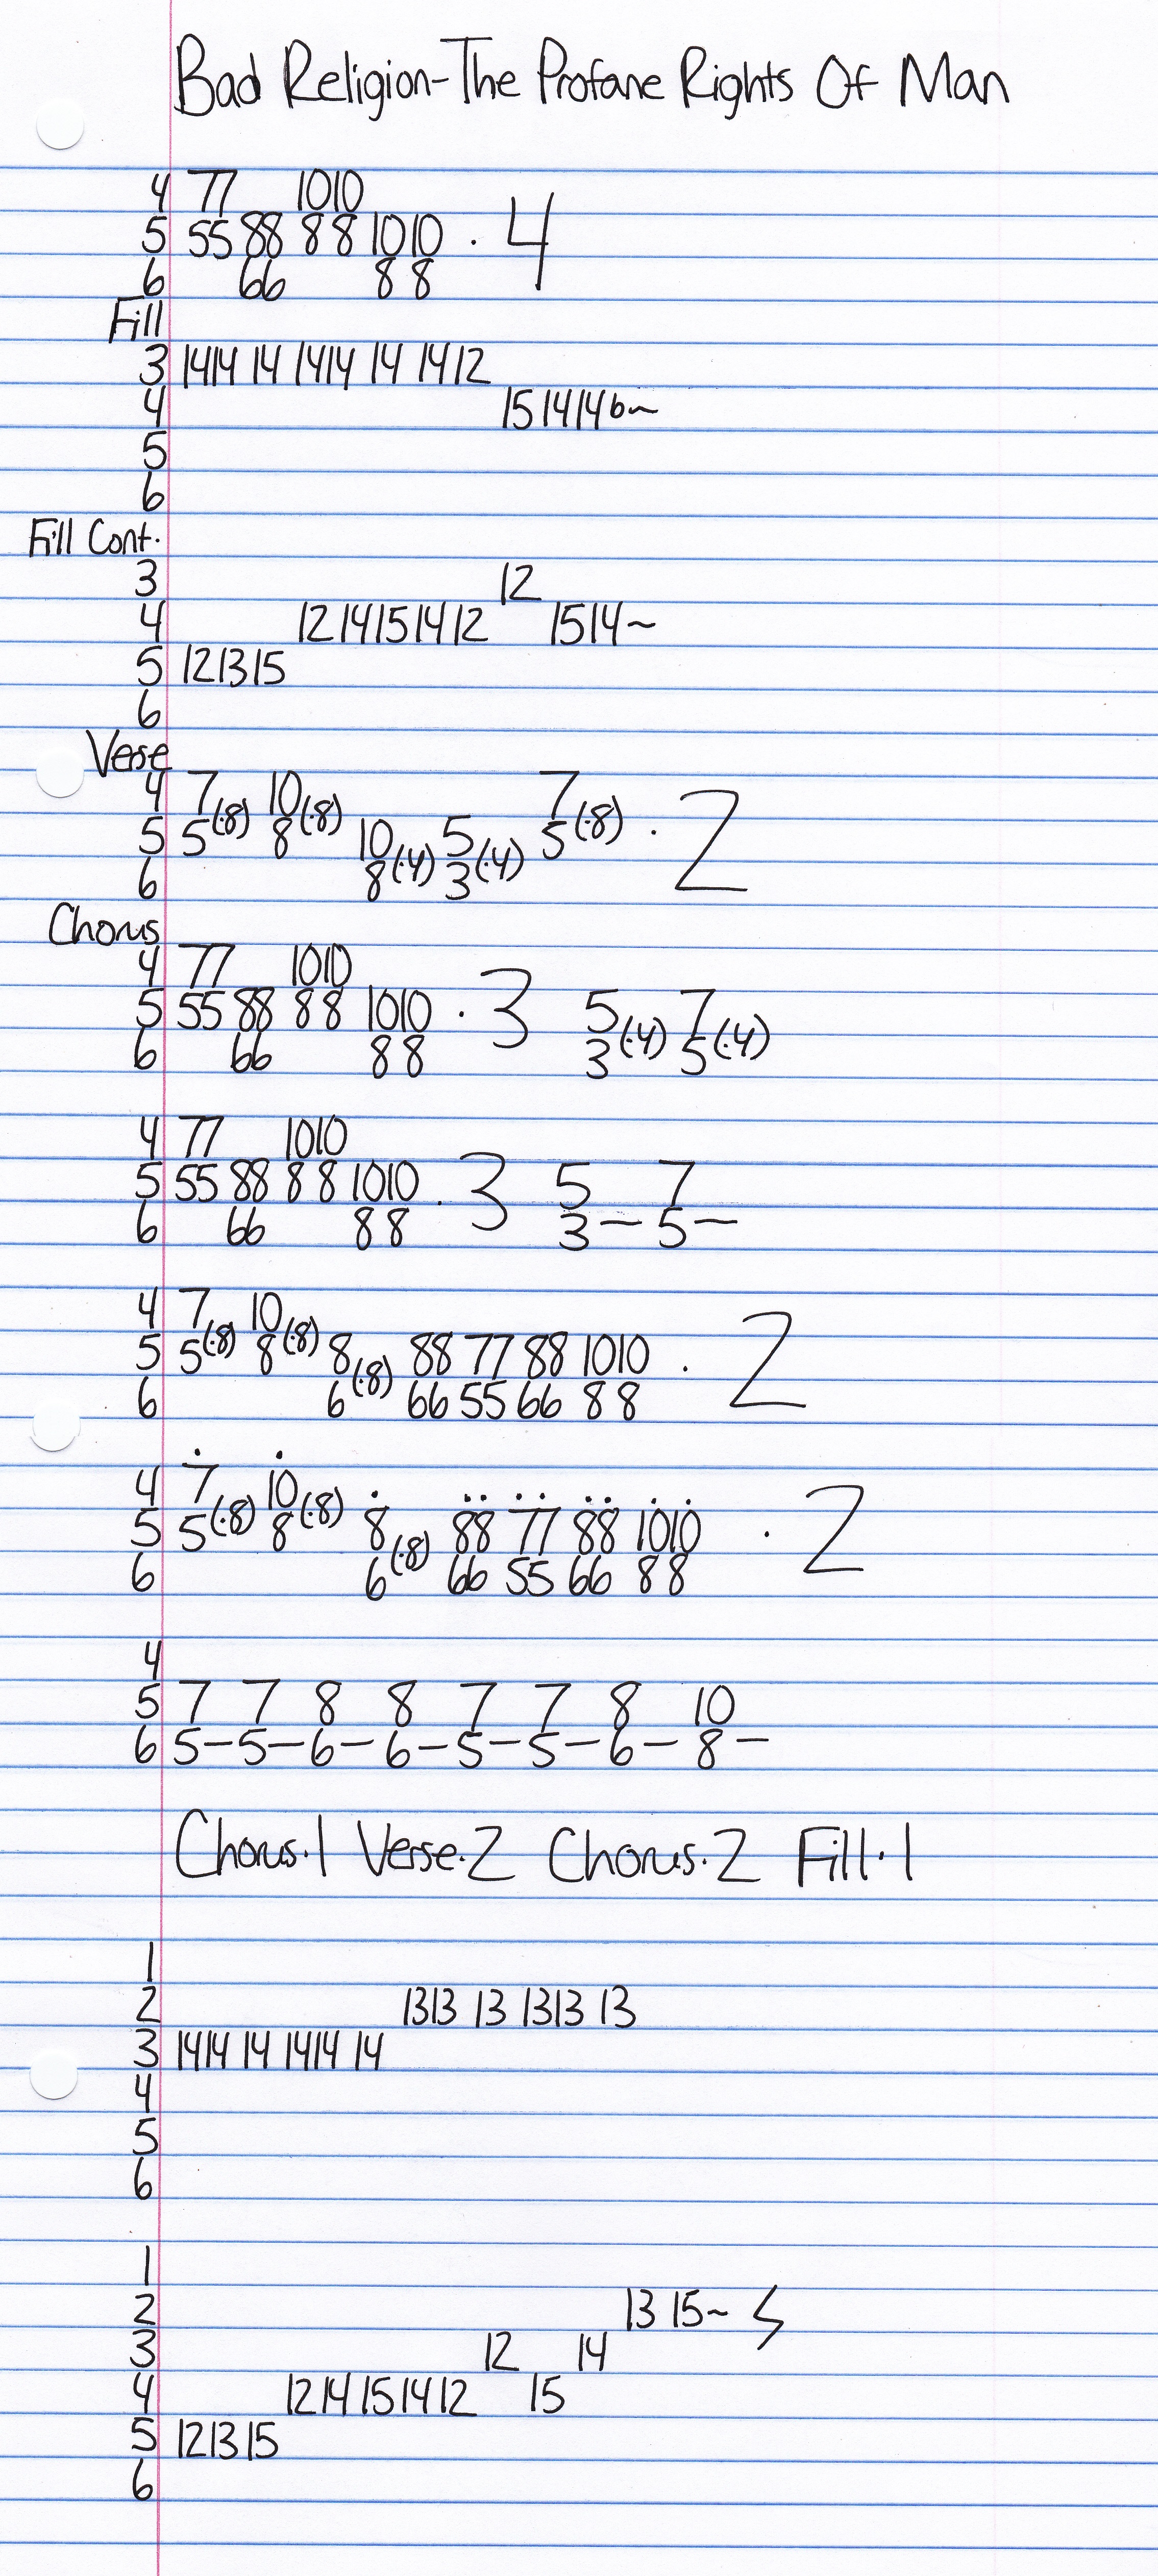 Bad Religion-The Profane Rights Of Man
4 77 1010
5 55 88 8 8 1010 · 4
6 66 8 8
Fill
3 1414 14 1414 14 1412
4 15 1414b~
5
6
Fill Cont.
3 12
4 12 1415 1412 1514~
5 121315
6
Verse
4 7(·8) 10(·8) 7(·8)
5 5 8 10(·4) 5(·4) 5 · 2
6 8 3
Chorus
4 77 1010
5 55 88 8 8 1010 · 3 5(·4) 7(·4)
6 66 8 8 3 5
4 77 1010
5 55 88 8 8 1010 · 3 5 7
6 66 8 8 3— 5—
4 7(·8) 10(·8)
5 5 8 8(·8) 88 77 88 1010 · 2
6 6 66 55 66 8 8
4 7(·8) 10(·8)
5 5 8 8(·8) 88 77 88 1010 · 2
6 6 66 55 66 8 8
4
5 7 7 8 8 7 7 8 10
6 5—5—6—6—5—5—6—8—
Chorus·1 Verse·2 Chorus·2 Fill·1
1
2 1313 13 1313 13
3 1414 14 1414 14
4
5
6
1
2 13 15~
3 12 14
4 1214 15 1412 15
5 121315
6